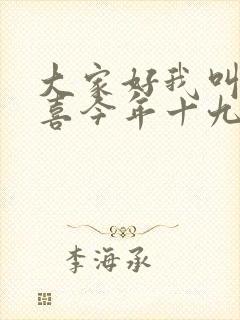 大家好我叫
喜今年十九
李海承